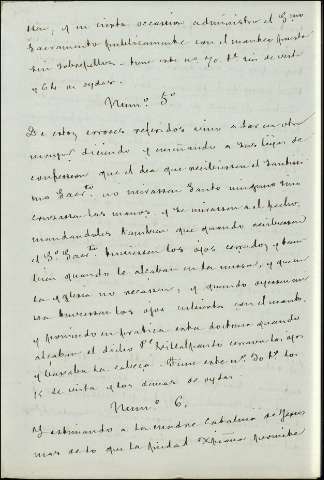 ra, y en cierta occasion administró el S.mo
Sacramento publicamente con el manteo puesto
sin sobrepelliz. tiene este n.º 70. t.os seis de vista
y 64 de oydas.
Num.º 5º
De estos errores referidos vino a dar en otro
mayor diciendo y enseñando a sus hijas de
confession que el dia que recibiessen el Santissi
mo Sacr.to no mirassen Santo ninguno sino
cruzassen las manos, y se mirassen a el pecho,
mandandoles tambien que quando recibiessen
el S.mo Sacr.to tuviessen los ojos cerrados y tam
bien quando le alzaban en la missa, y que en
la yglesia no rezassen, y quando oyessen mi
ssa tuviessen los ojos cubiertos con el manto,
y poniendo en pratica esta doctrina quando
alzaban el dicho P.e Villalpando cerraba los ojos
y baxaba la cabeza. Tiene este n.º 30 t.os los
de vista y los demas de oydas.
Num.º 6.
Y estimando a la madre Catalina de Jesus
mas de lo que la piedad Xpiana permite